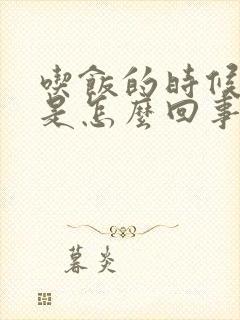 喫飯的時候
是怎麼回事
暮炎